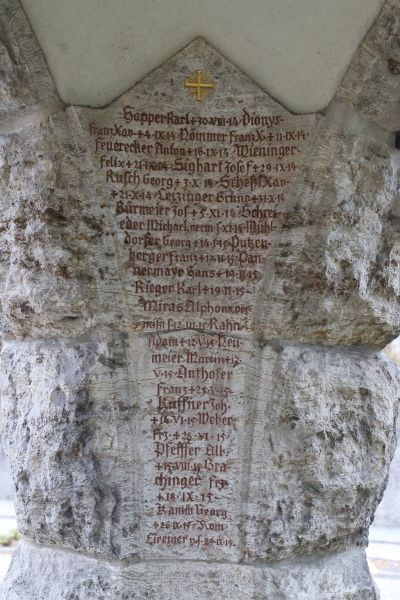 Hopper Karl + 30·VIII·14· Dionys·
Franz Xav· + 4·IX·14· Nömmer Franz X· + 11·IX·14·
Feuerecker Anton + 16·IX·14· Wieninger
Felix + 21·IX·14· Sighart Josef + 29·IX·14·
Rusch Georg + 3·X·14· Scheßl Xav·
+ 21·X·14· Leizinger Bruno + 31·X·14·
Bürmeier Jos· + 5·XI·14· Schrei-
eder Michael, verm· 5·XI·14· Mühl-
dorfer Georg + 14·I·15· Putzen-
berger Franz + II·15· Dan-
nermayr Hans + 19·II·15·
Rieger Karl + 19·II·15·
Miras Alphons, ver-
mißt s· 12·III·15· Rahn
Adam + 12·V·15· Neu-
meier Martin + 12·
V·15· Anthofer
Franz + 25·V·15·
Kuffner Joh·
+ 16·VI·15· Weber
Frz· + 26·VI·15·
Pfeffer Alb·
+ 15·VIII·15· Bra-
chinger Frz·
+ 18·IX·15·
Kamm Georg
+ 26·IX·15· Kom-
29·IX·15·